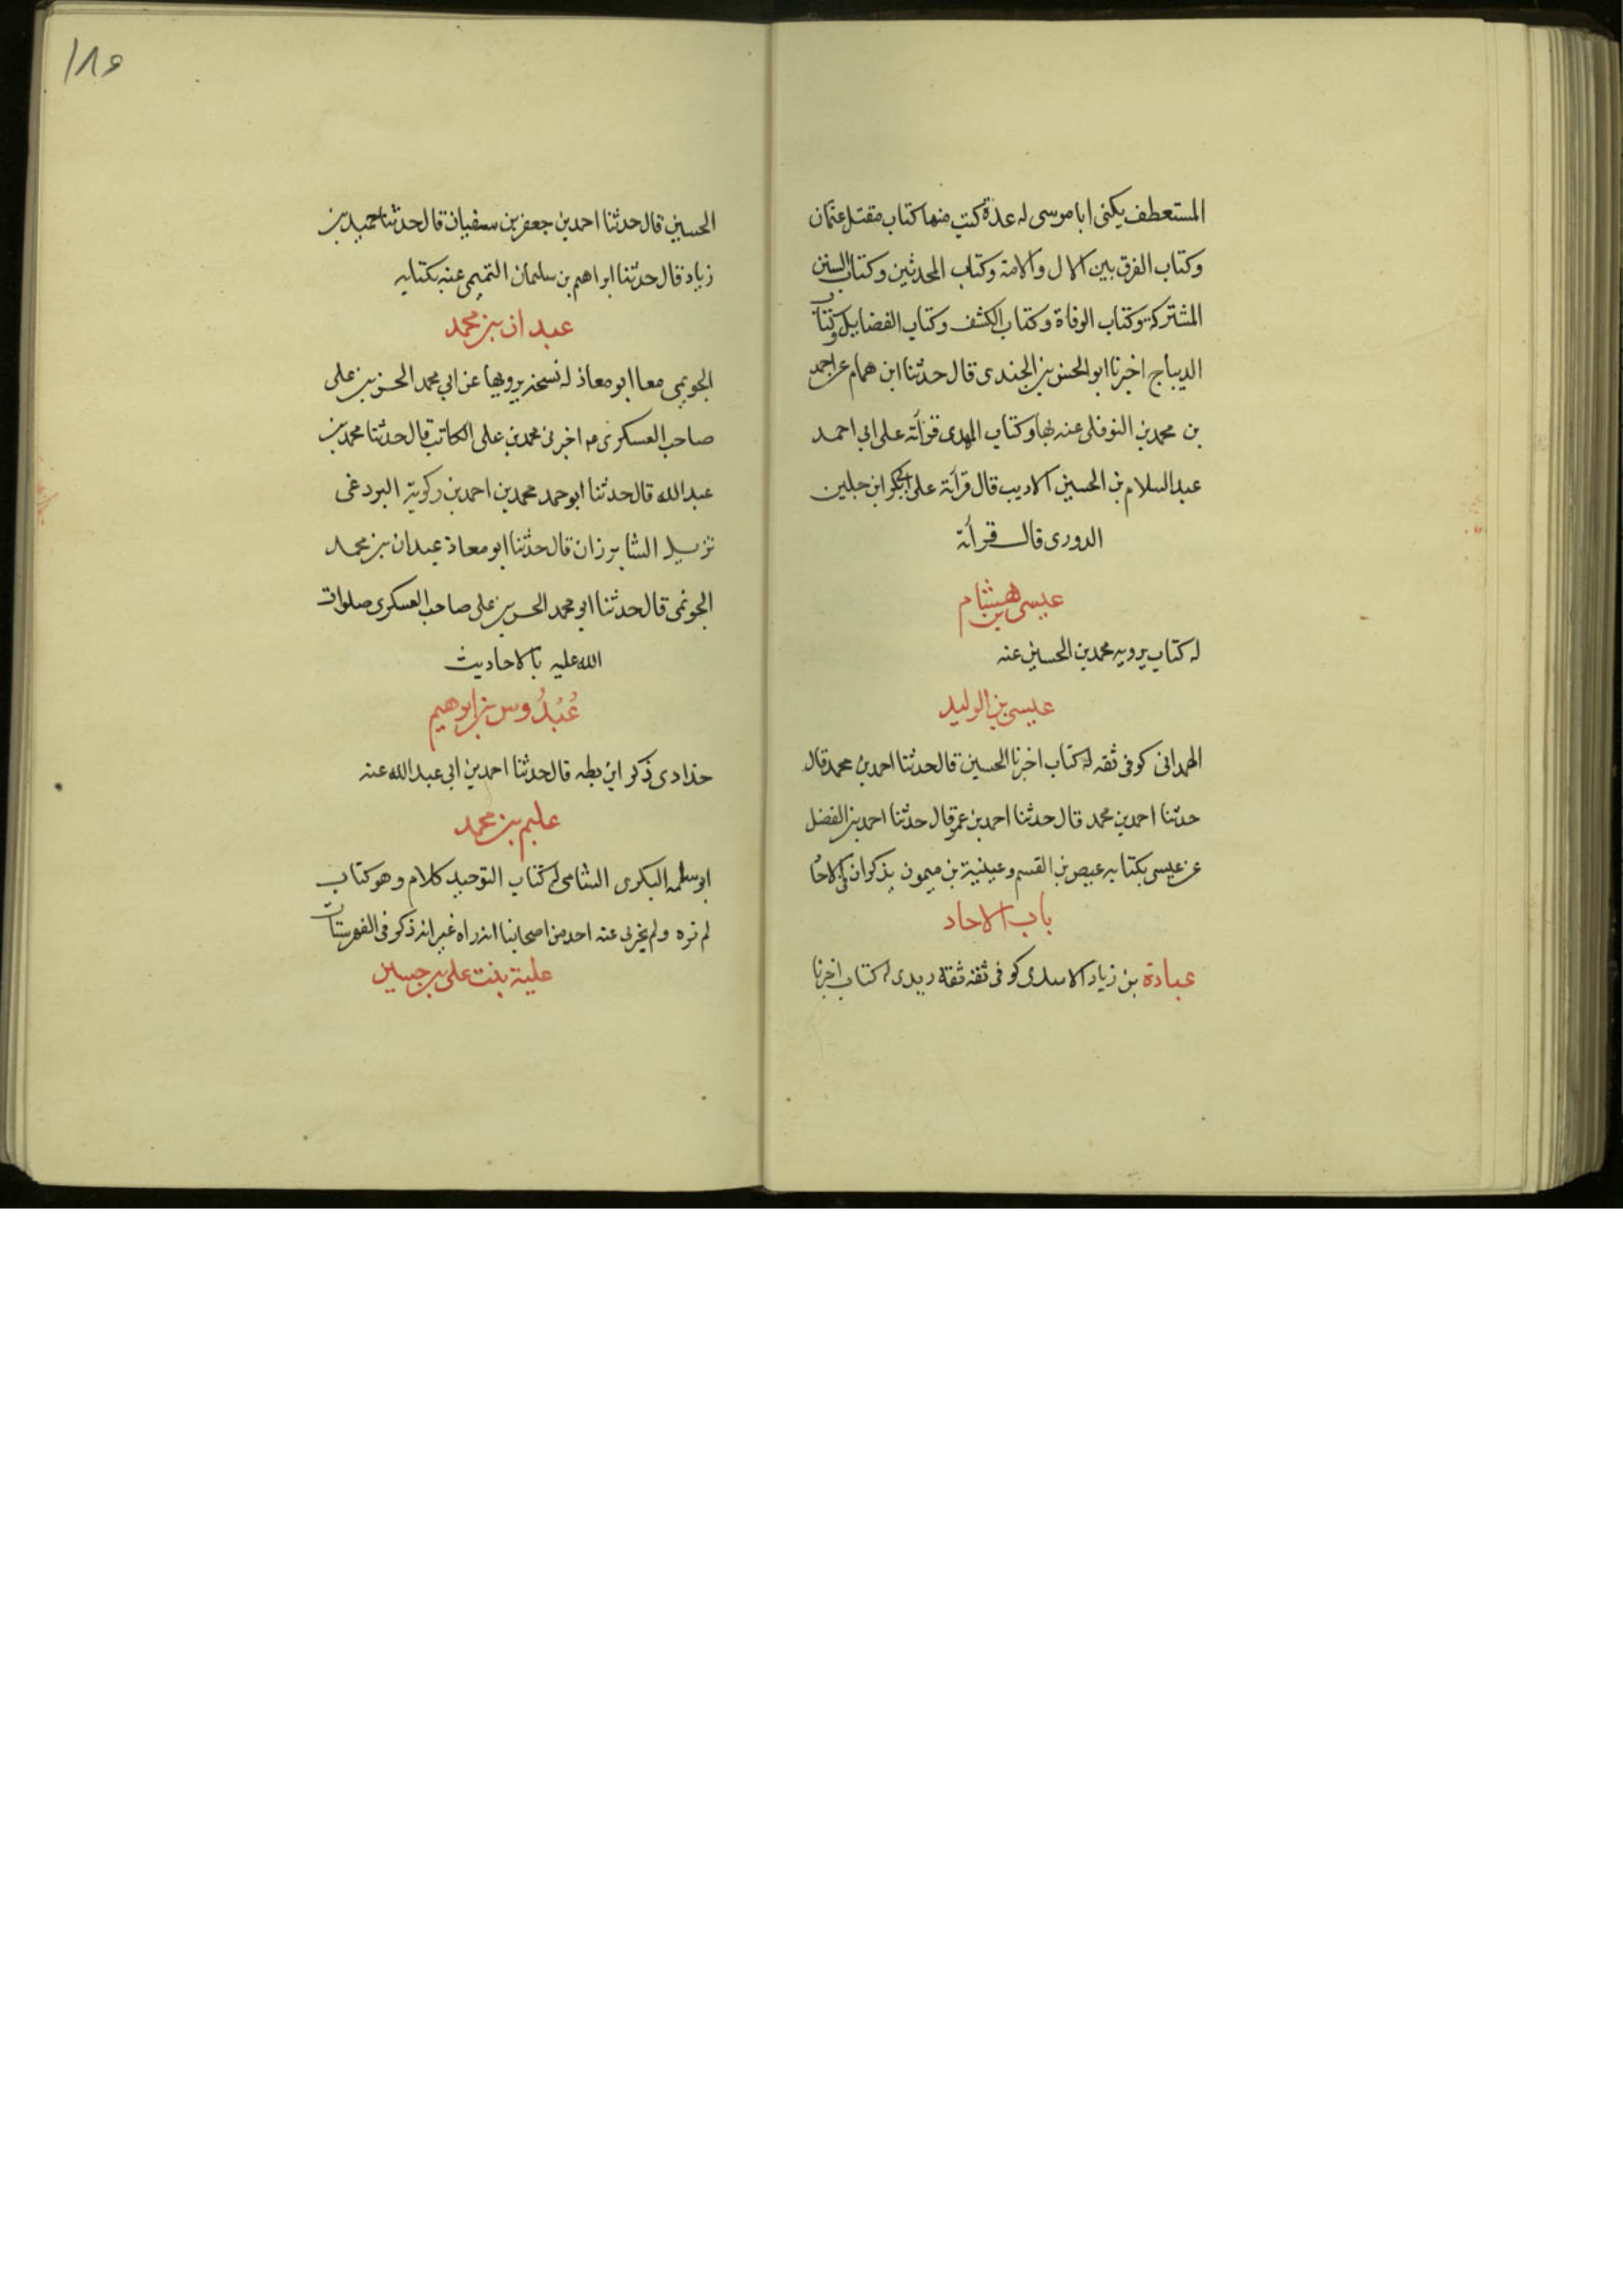 المستعطف يكنى ابا موسى له عدة كتب منها كتاب مقتل عثمان
وكتاب الفرق بين الال والامة وكتاب المحدثين وكتاب السنن
المشتركة وكتاب الوفاة وكتاب الكشف وكتاب الفضايل وكتاب
الديباج اخبرنا ابو الحسن بن الجندى قال حدثنا ابن همام عن احمد
بن محمد بن النوفلى عنه بها وكتاب المهدى قرأته على ابى احمد
عبد السلام بن الحسين الاديب قال قرأته على ابى بكر ابن جلين
الدورى قال قرأته
عيسى بن هشام
له كتاب يرويه محمد بن الحسين عنه
عيسى بن الوليد
الهمدانى كوفى ثقه له كتاب اخبرنا الحسين قال حدثنا احمد بن محمد قال
حدثنا احمد بن محمد قال حدثنا احمد بن عمر قال حدثنا احمد بن الفضل
عن عيسى بكتابه عيص بن القسم وعيينة بن ميمون يذكران فى الاحاد
باب الاحاد
عبادة بن زياد الاسدى كوفى ثقه ثقة زيدى له كتاب اخبرنا
١٨٤
الحسين قال حدثنا احمد بن جعفر بن سفيان قال حدثنا حميد بن
زياد قال حدثنا ابراهيم بن سليمان التميمى عنه بكتابه
عبدان بن محمد
الجويمى معا ابو معاذ له نسخة يرويها عن ابى محمد الحسن بن على
صاحب العسكرى م اخبرنى محمد بن على الكاتب قال حدثنا محمد بن
عبد الله قال حدثنا ابو حمد محمد بن احمد بن ركوية البردعى
نزيل الشابرزان قال حدثنا ابو معاذ عبدان بن محمد
الجوئمى قال حدثنا ابو محمد الحسن بن على صاحب العسكرى صلوات
الله عليه بالاحاديث
عُبْدُوس بن ابراهيم
حذادى ذكر ابن بطه قال حدثنا احمد بن ابى عبد الله عنه
عليم بن محمد
ابو سلمه البكرى الشامى له كتاب التوحيد كلام وهو كتاب
لم نره ولم يخبرنى عنه احد من اصحابنا انه راه غير انه ذكر فى الفهرستات
علية بنت على بن حسين